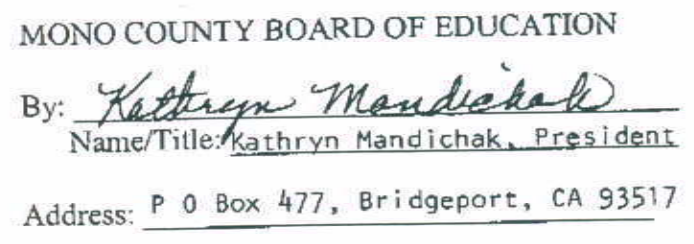 MONO COUNTY BOARD OF EDUCATION
By: Kathryn Mandichak
Name/Title: Kathryn Mandichak, President
Address: P O Box 477, Bridgeport, CA 93517